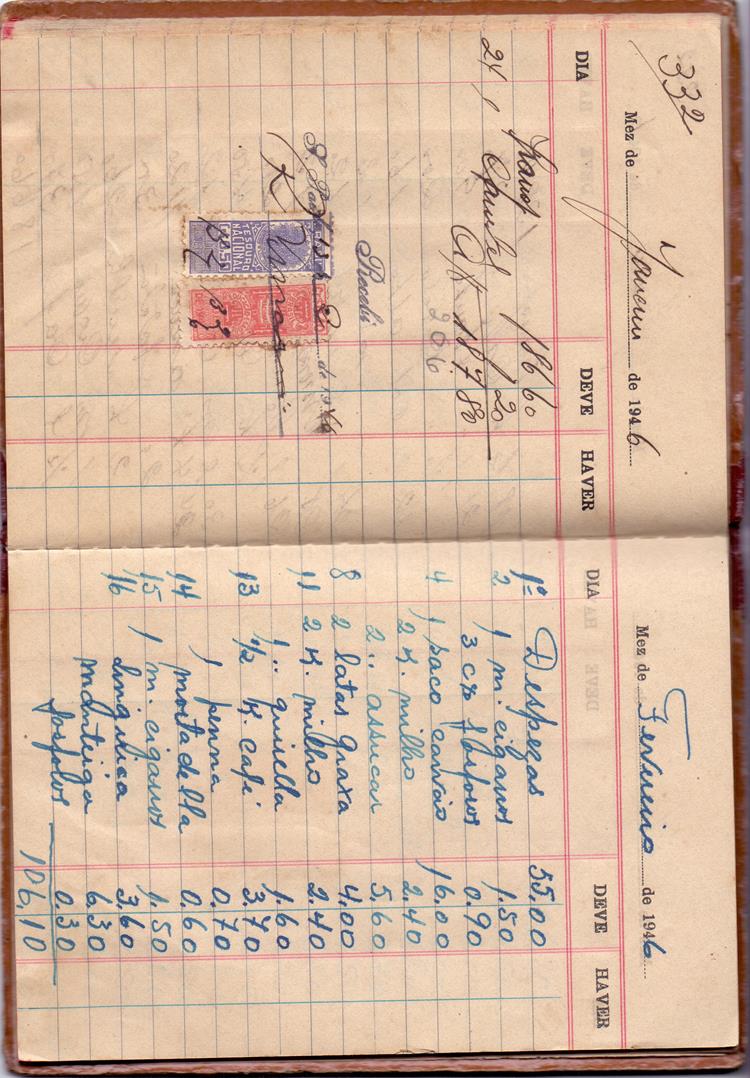 332
Mez de Janeiro de 1946
DIA DEVE HAVER
24 Transp 186 60
1 20
187 80
206
Recebi
S. Paulo de 1946
TESOURO NACIONAL
Mez de Fevereiro de 1946
DIA DEVE HAVER
1º Despezas 55.00
2 1 m. cigarros 1.50
3 cx fosforos 0.90
4 1 saco carvão 16.00
2 K. milho 2.40
2 " assucar 5.60
8 2 latas graxa 4.00
11 2 K. milho 2.40
1 " quirella 1.60
13 1/2 K. café 3.70
1 penna 0.70
14 mortadella 0.60
15 1 m. cigarros 1.50
16 linguiça 3.60
manteiga 6.30
fosforos 0.30
106,10